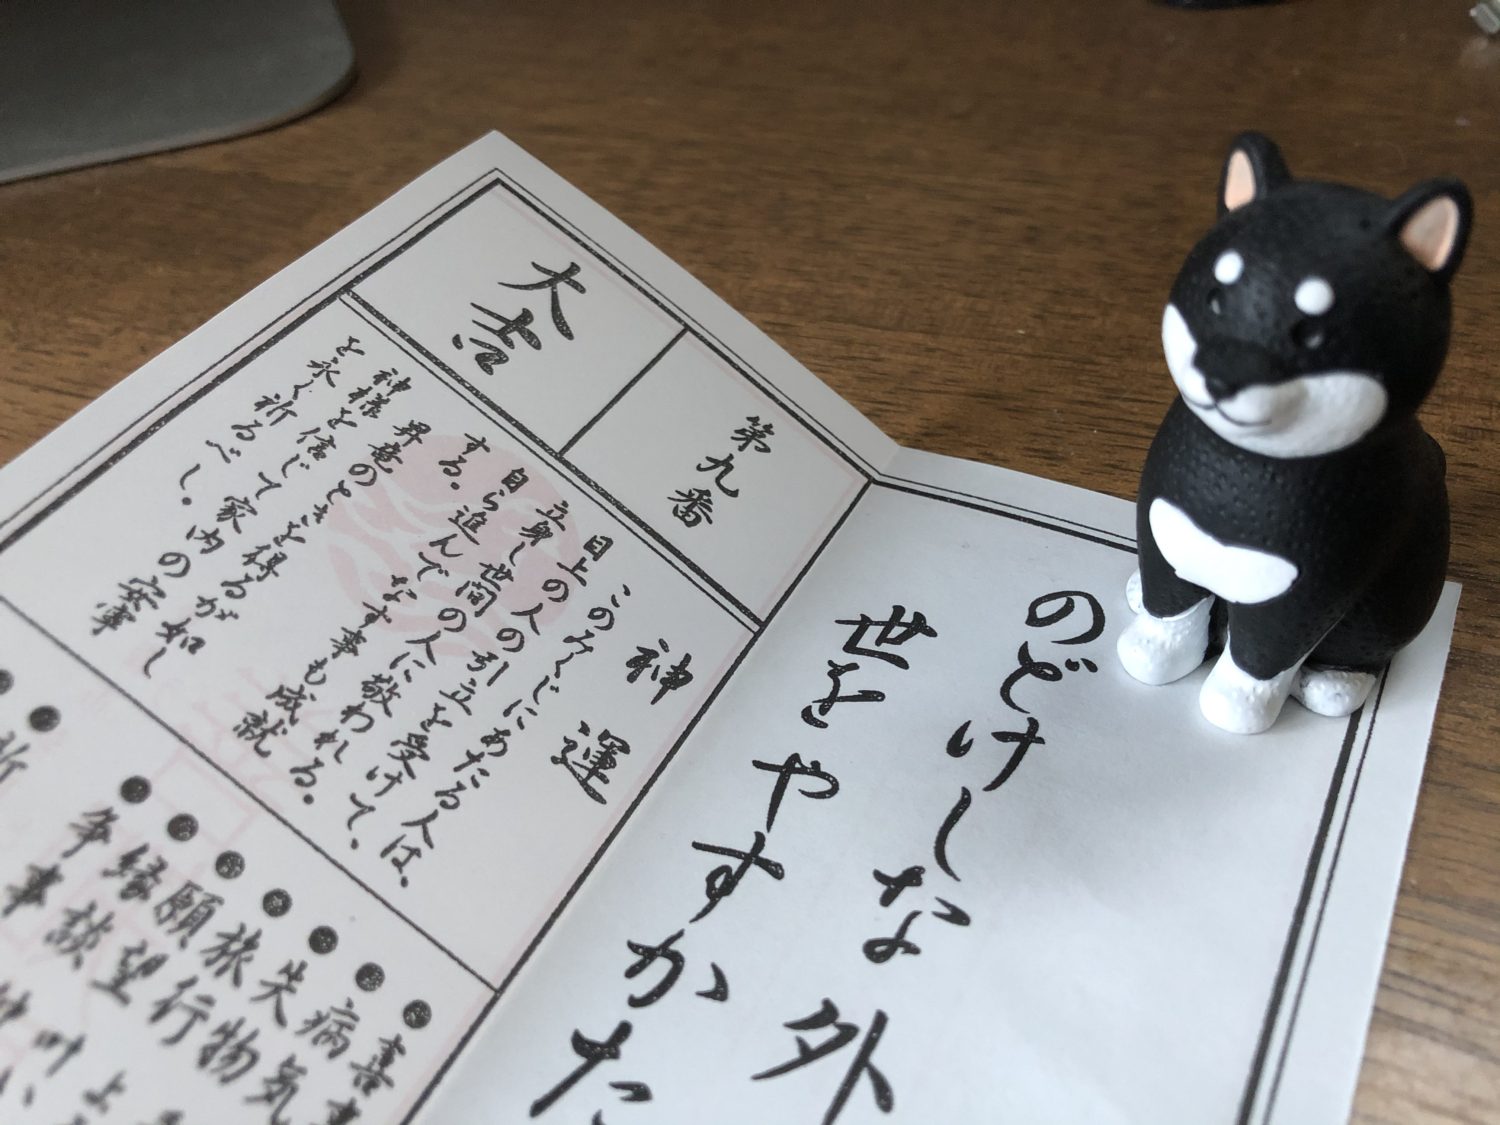 のどけしな外
世をやすかた
第九番
大吉
神運
このみくじにあたる人は、
目上の人の引立を受けて、
立身し世間の人に敬われる。
自ら進んでなす事も成就
する。
昇竜のときを得るが如し
神様を信じて家内の安寧
を永く祈るべし。
●喜
●病気
●失物
●旅行
●願望
●縁談
●争事
●祈